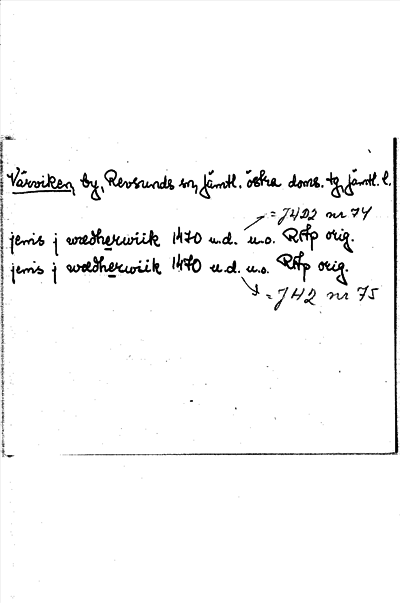 Värviken, by, Revsunds sn, Jämtl. östra doms. tg, Jämtl. l.
= JHD2 nr 74
jenis j wædherwiik 1470 u.d. u.o. RAp orig.
jenis j wædherwiik 1470 u.d. u.o. RAp orig.
= JH2 nr 75